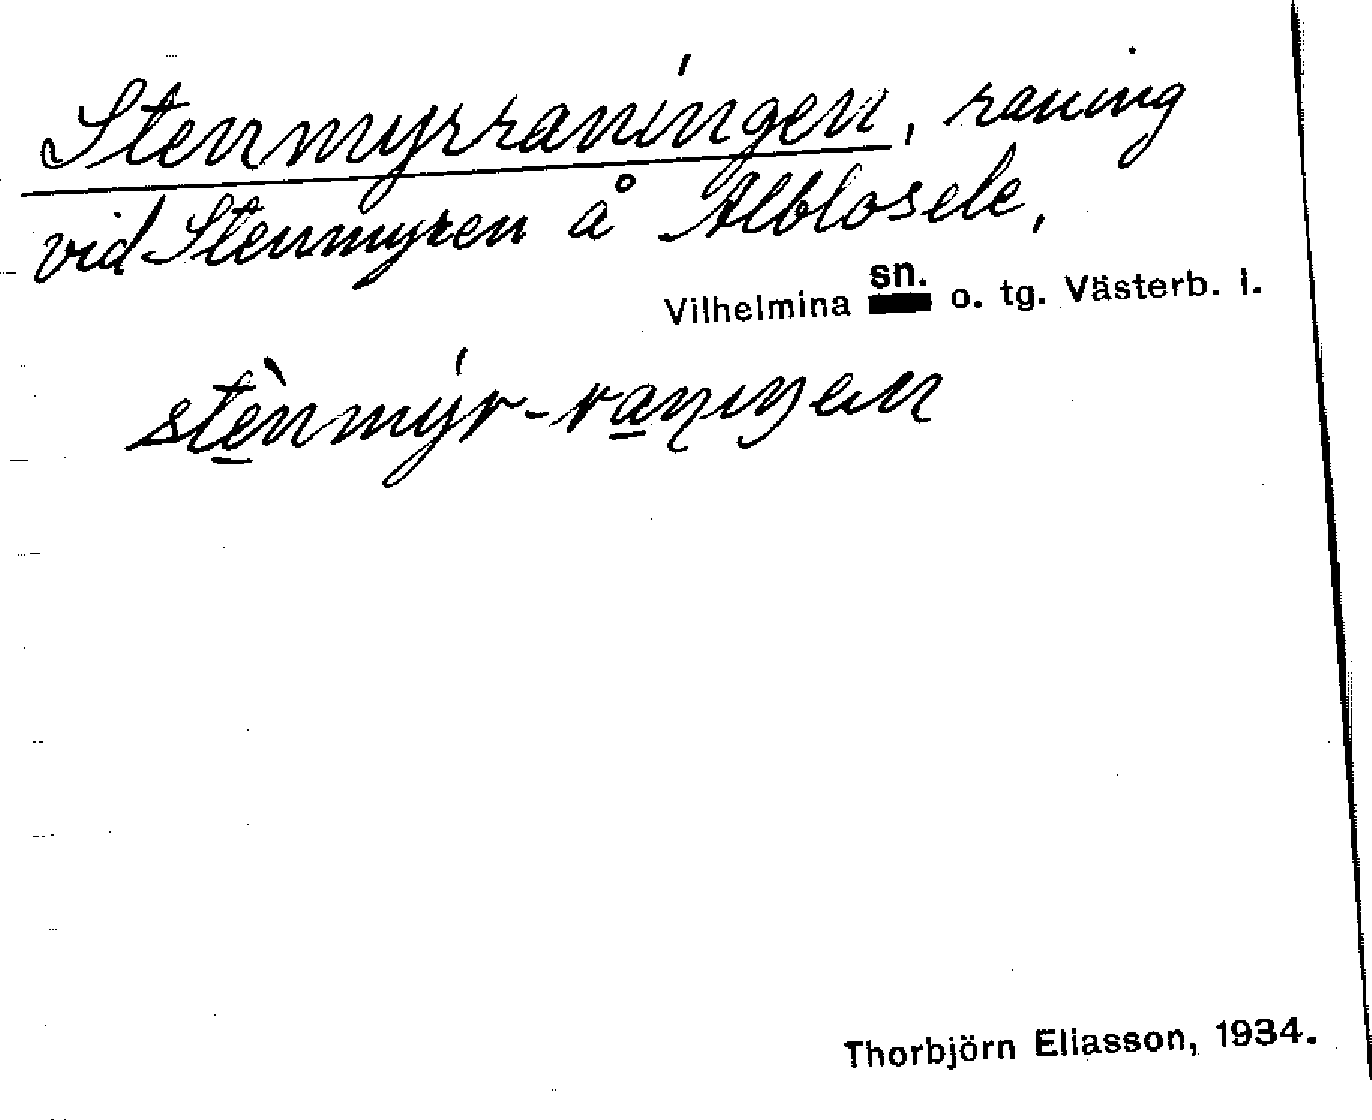 Stenmyrraningen, raning
vid Stenmyren å Alblosele,
Vilhelmina sn. o. tg. Västerb. l.
stènmýr-raniŋen
Thorbjörn Eliasson, 1934.